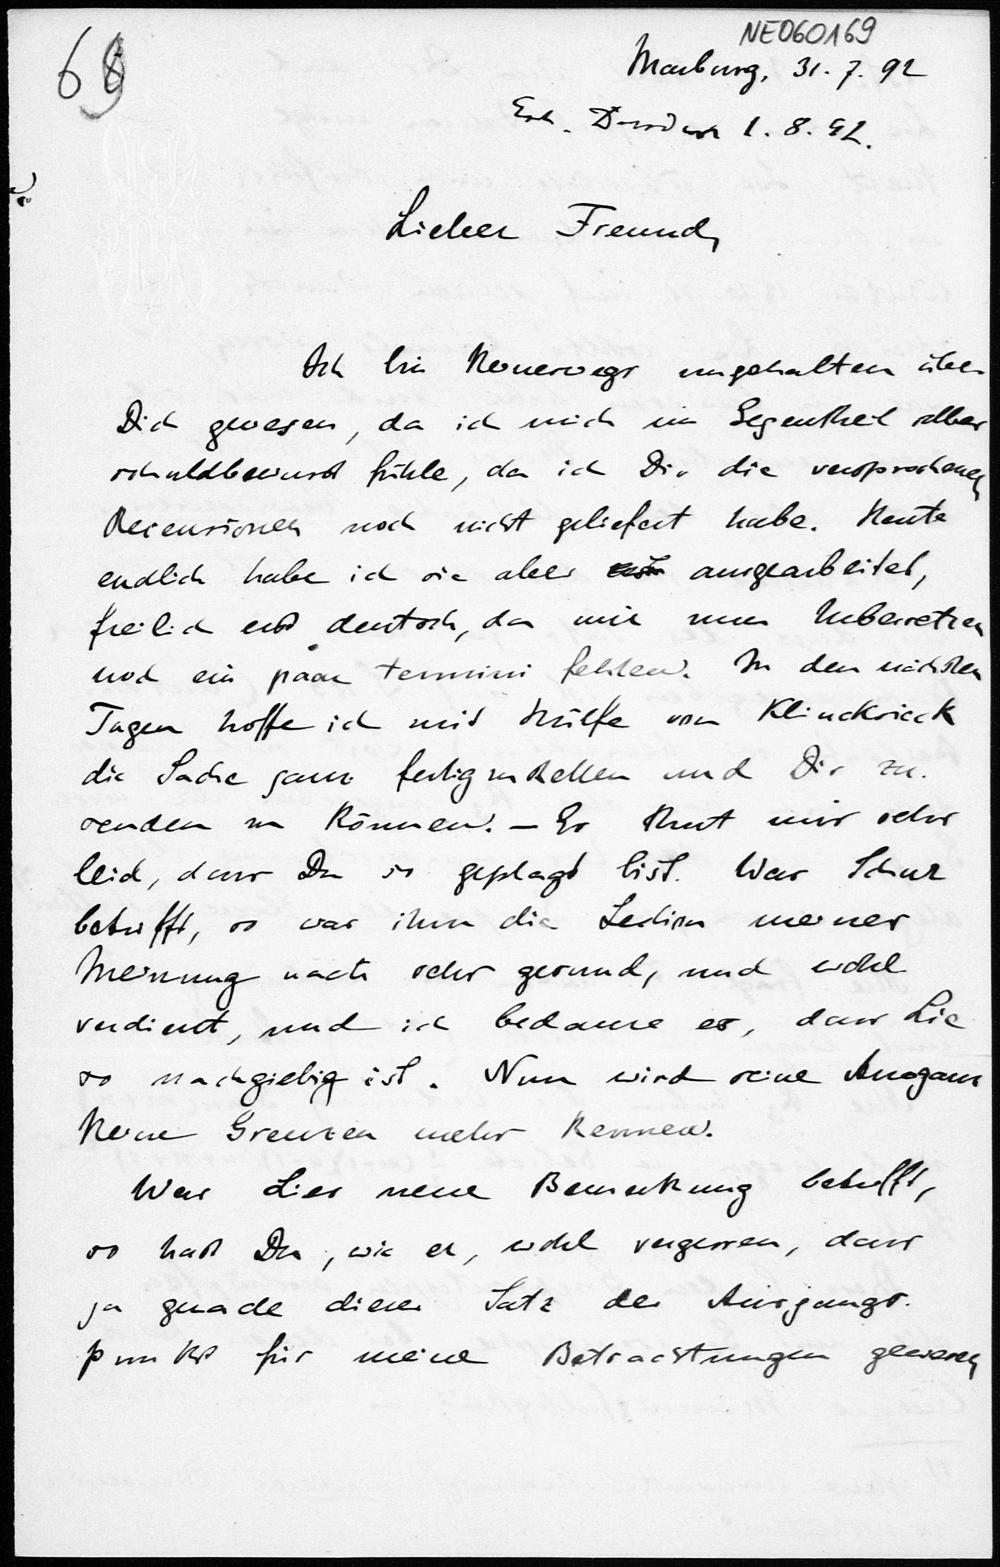 NE060169
68
Marburg, 31. 7. 92
Erh. Dresden 1. 8. 92.
Lieber Freund,
Ich bin keineswegs ungehalten über
Dich gewesen, da ich mich im Gegentheil selber
schuldbewusst fühle, da ich Dir die versprochenen
Recensionen noch nicht geliefert habe. Heute
endlich habe ich sie aber ausgearbeitet,
freilich erst deutsch, da mir zum Uebersetzen
noch ein paar termini fehlen. In den nächsten
Tagen hoffe ich mit Hülfe von Klincksieck
die Sache ganz fertigzustellen und Dir zu-
senden zu können. – Es thut mir sehr
leid, dass Du so geplagt bist. Was Schur
betrifft, so war ihm die Lection meiner
Meinung nach sehr gesund, und wohl
verdient, und ich bedaure es, dass Lie
so nachgiebig ist. Nun wird seine Arroganz
keine Grenzen mehr kennen.
Was Lies neue Bemerkung betrifft,
so hast Du, wie er, wohl vergessen, dass
ja gerade dieser Satz der Ausgangs-
punkt für meine Betrachtungen gewesen